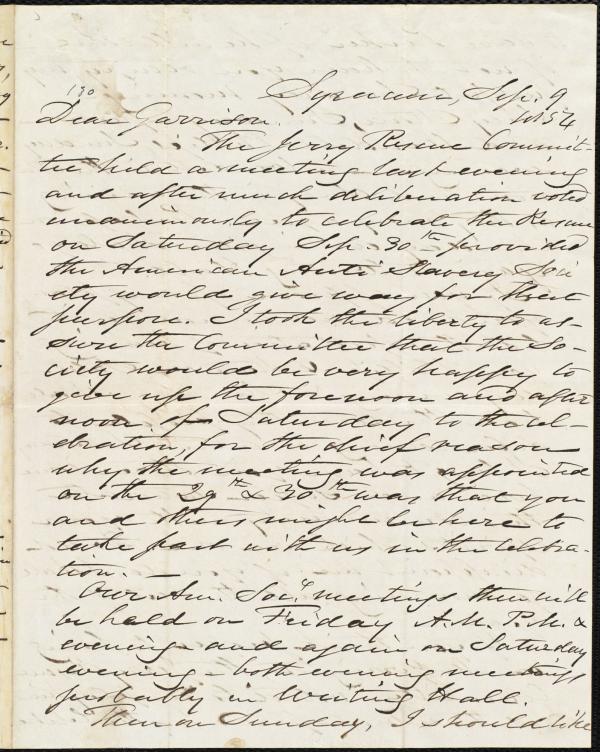 130
Syracuse, Sep. 9
1854
Dear Garrison.
The Jerry Rescue Commit-
tee held a meeting last evening
and after much deliberation voted
unanimously to celebrate the Rescue
on Saturday Sep. 30th provided
the American Anti Slavery Soci
ety would give way for that
purpose. I took the liberty to as-
sure the Committee that the So-
ciety would be very happy to
give up the forenoon and after
noon of Saturday to the cel-
ebration, for the chief reason
why the meeting was appointed
on the 29th & 30th was that you
and others might be here to
take part with us in the celebra-
tion. —
Our Am. Socy. meetings then will
be held on Friday A.M. P.M. &
evening and again on Saturday
evening - both evening meetings
probably in Wieting Hall.
Then on Sunday, I should like